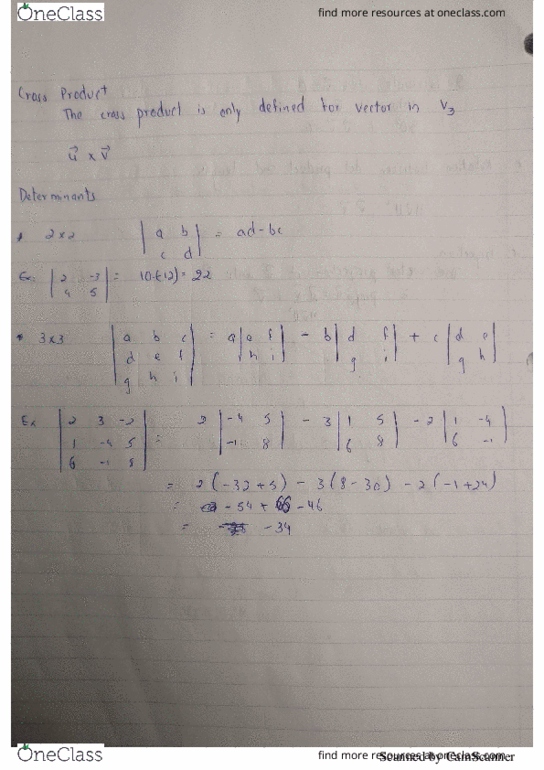 OneClass find more resources at oneclass.com
Cross Product
The cross product is only defined for vector in V3
u⃗ x v⃗
Determinants
2x2 | a b | = ad-bc
| c d |
Ex | 2 -3 | = 10-(-12) = 22
| 4 5 |
3x3 | a b c | = a | e f | - b | d f | + c | d e |
| d e f | | h i | | g i | | g h |
| g h i |
Ex | 2 3 -2 | = 2 | -4 5 | - 3 | 1 5 | - 2 | 1 -4 |
| 1 -4 5 | | -1 8 | | 6 8 | | 6 -1 |
| 6 -1 8 |
= 2(-32+5) - 3(8-30) - 2(-1+24)
= -54 + 66 - 46
= -34
OneClass find more resources at oneclass.com
Scanned by CamScanner